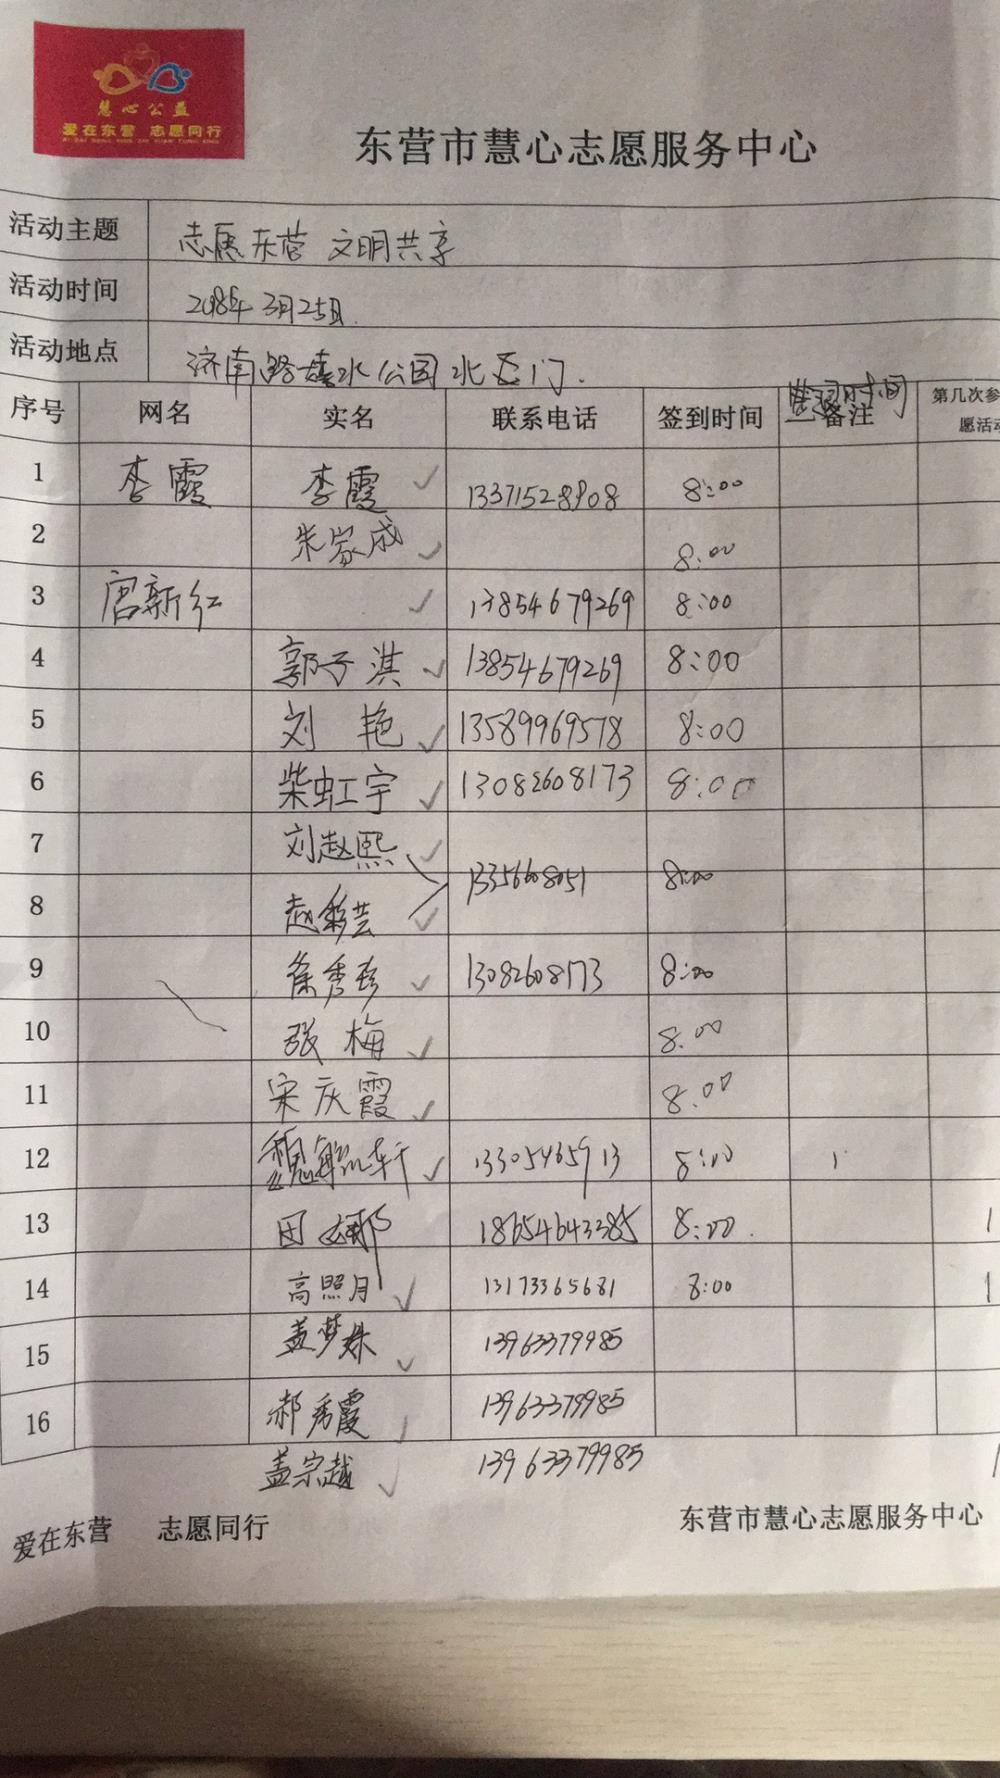 慧心公益
爱在东营 志愿同行
东营市慧心志愿服务中心
活动主题 志愿东营 文明共享
活动时间 3月25日
活动地点 济南路 水公园北区门.
序号 网名 实名 联系电话 签到时间 备注 时间 第几次参
愿活动
1 李霞 李霞 ✓ 13371528908 8:00
2 朱家成 ✓ 8:00
3 唐新红 ✓ 13854679269 8:00
4 郭子淇 ✓ 13854679269 8:00
5 刘艳 ✓ 13589969578 8:00
6 柴虹宇 ✓ 13082608173 8:00
7 刘赵熙 ✓ 13356608051 8:00
8 赵彩芸 ✓
9 徐秀珍 ✓ 13082608173 8:00
10 张梅 ✓ 8.00
11 宋庆霞 ✓ 8.00
12 魏 轩 ✓ 13305465913 8:00 1
13 田娜 18654643385 8:00. 1
14 高照月 ✓ 13173365681 8:00 1
15 盖梦姝 ✓ 13963379985
16 郝秀霞 ✓ 13963379985
盖宗越 ✓ 13963379985 1
爱在东营 志愿同行 东营市慧心志愿服务中心